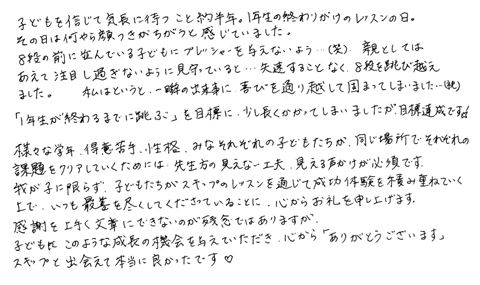 子どもを信じて気長に待つこと約半年。1年生の終わりがけのレッスンの日。
その日は何やら顔つきがちがうと感じていました。
8段の前に並んでいる子どもにプレッシャーを与えないよう…(笑) 親としては
あえて注目し過ぎないように見守っていると…失速することなく、8段を跳び越え
ました。 私はというと、一瞬の出来事に、喜びを通り越して固まってしまいました…(笑)
「1年生が終わるまでに跳ぶ」を目標に、少し長くかかってしまいましたが目標達成です
様々な学年、得意苦手、性格、みなそれぞれの子どもたちが、同じ場所でそれぞれの
課題をクリアしていくためには、先生方の見えない工夫、見える声かけが必須です。
我が子に限らず、子どもたちがスキップのレッスンを通じて成功体験を積み重ねていく
上で、いつも最善を尽くしてくださっていることに、心からお礼を申し上げます。
感謝を上手く文章にできないのが残念ではありますが、
子どもに このような成長の機会を与えていただき、心から「ありがとうございます」
スキップと出会えて本当に良かったです♡